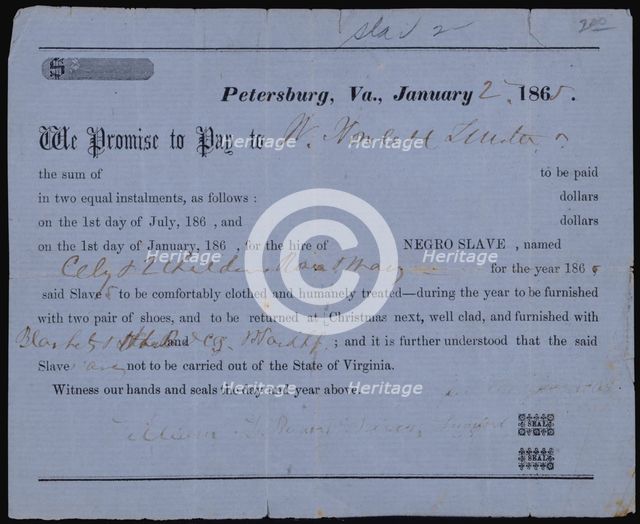 $
Petersburg, Va., January 2, 1865.
We Promise to Pay to W.
the sum of to be paid
in two equal instalments, as follows : dollars
on the 1st day of July, 186 , and dollars
on the 1st day of January, 186 , for the hire of NEGRO SLAVE , named
Celey & 2 Children for the year 186
said Slaves to be comfortably clothed and humanely treated—during the year to be furnished
with two pair of shoes, and to be returned at Christmas next, well clad, and furnished with
Blankets and ; and it is further understood that the said
Slave are not to be carried out of the State of Virginia.
Witness our hands and seals the day and year above.
SEAL
SEAL
Heritage-Images
Heritage-Images
Heritage-Images
Heritage-Images
Heritage-Images
C